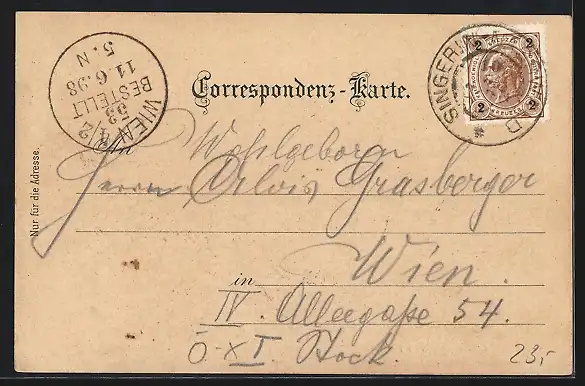 Correspondenz-Karte.
SINGERIN
2 2
2 2
WIEN 4/2
53
BESTELLT
11.6.98
5.N
Nur für die Adresse.
An
Wohlgeborn
Herrn Alois Grasberger
in Wien.
IV. Alleegaße 54.
I. Stock.
23,-